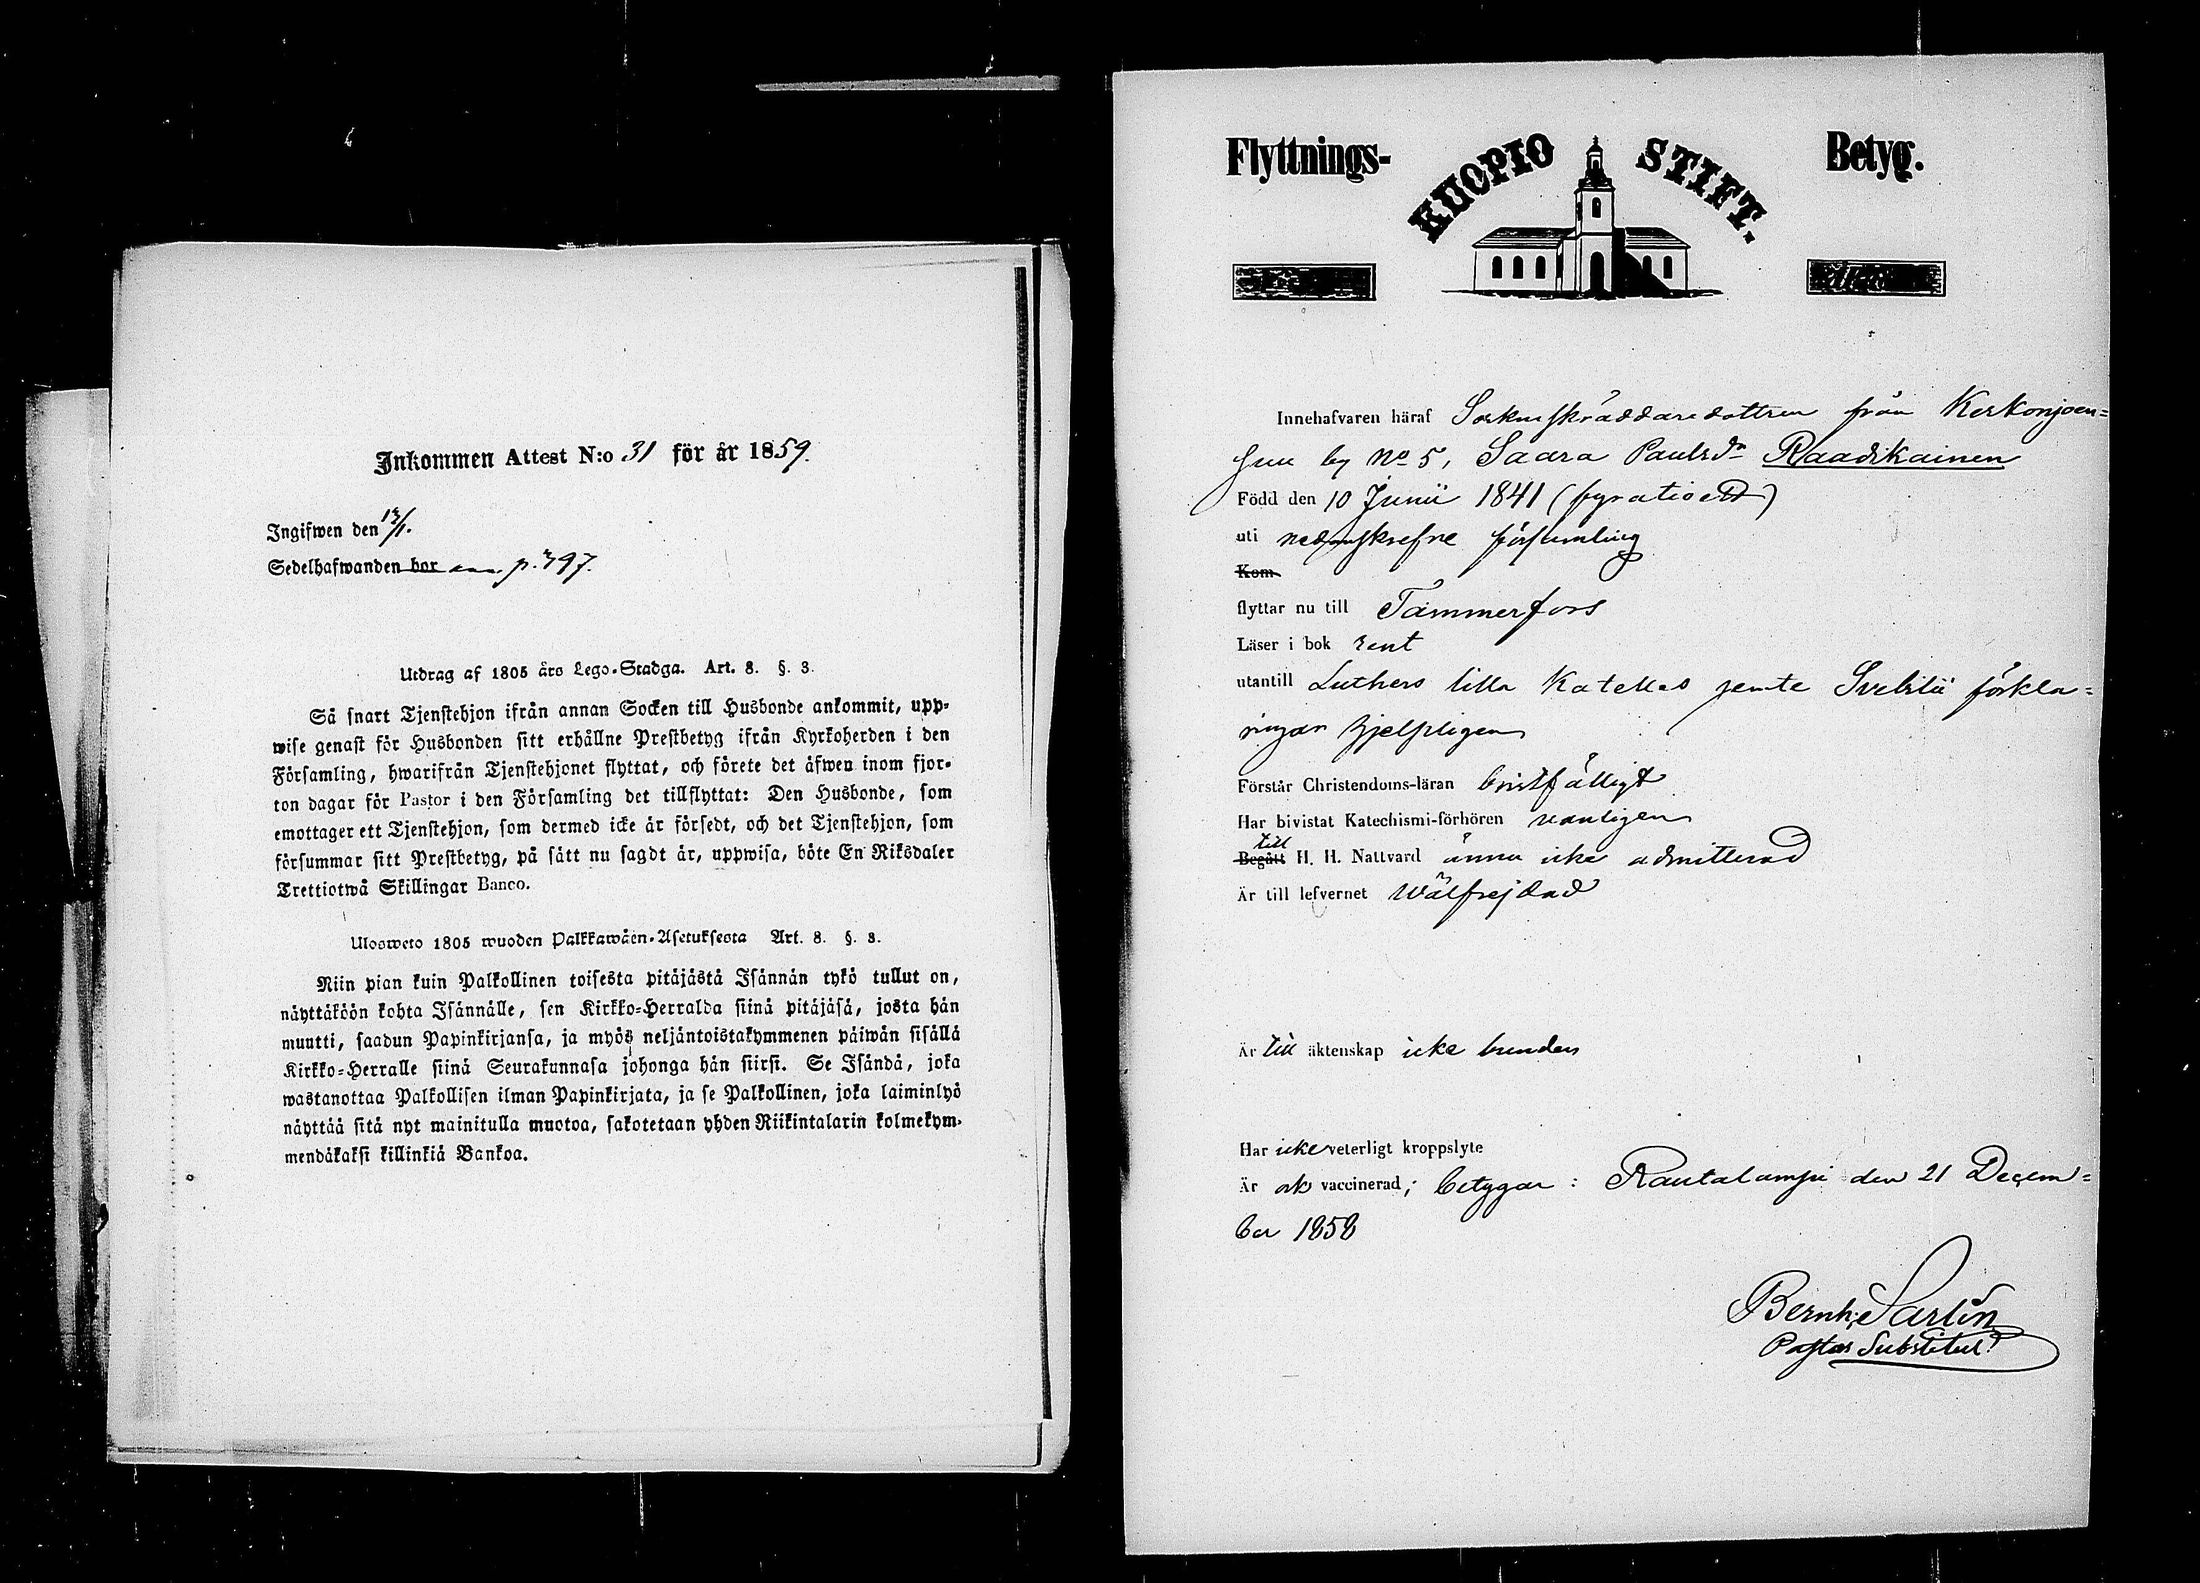 Inkommen Attest N:o 31 för år 1859.
Ingifwen den 13/1.
Sedelhafwanden bor p. 397.
Utdrag af 1805 års Lego-Stadga. Art. 8. §. 3.
Så snart Tjenstehjon ifrån annan Socken till Husbonde ankommit, upp-
wise genast för Husbonden sitt erhållne Prestbetyg ifrån Kyrkoherden i den
Församling, hwarifrån Tjenstehjonet flyttat, och förete det äfwen inom fjor-
ton dagar för Pastor i den Församling det tillflyttat: Den Husbonde, som
emottager ett Tjenstehjon, som dermed icke är försedt, och det Tjenstehjon, som
försummar sitt Prestbetyg, på sätt nu sagdt är, uppwisa, böte En Riksdaler
Trettiotwå Skillingar Banco.
Ulosweto 1805 wuoden Palkkawäen-Asetuksesta Art. 8. §. 3.
Niin pian kuin Palkollinen toisesta pitäjästä Isännän tykö tullut on,
näyttäköön kohta Isännälle, sen Kirkko-Herralda siinä pitäjäsä, josta hän
muutti, saadun Papinkirjansa, ja myös neljäntoistakymmenen päiwän sisällä
Kirkko-Herralle siinä Seurakunnasa johonga hän siirsi. Se Isändä, joka
wastanottaa Palkollisen ilman Papinkirjata, ja se Palkollinen, joka laiminlyö
näyttää sitä nyt mainitulla muotoa, sakotetaan yhden Riikintalarin kolmekym-
mendäkaksi killinkiä Bankoa.
Flyttnings- KUOPIO STIFT. Betyg.
Innehafvaren häraf Sockneskräddaredottren från Kerkonjoen-
suu by No 5, Saara Paulsdr Raadikainen
Född den 10 Junii 1841 (fyratioett)
uti nedanskrefne församling
Kom
flyttar nu till Tammerfors
Läser i bok rent
utantill Luthers lilla Kateches jemte Svebilii förkla-
ringar hjelpligen
Förstår Christendoms-läran bristfälligt
Har bivistat Katechismi-förhören vanligen
till
Begått H. H. Nattvard ännu icke admitterad
Är till lefvernet wälfrejdad
Är till äktenskap icke bunden
Har icke veterligt kroppslyte
Är ock vaccinerad; betygar: Rautalampi den 21 Decem-
ber 1858
Bernh. Sarlin
Pastors Substitut